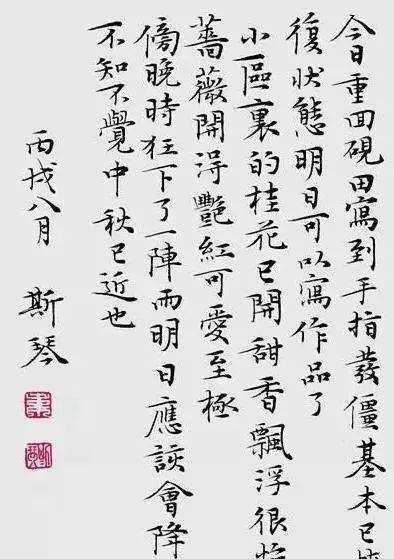 今日重面硯田寫到手指發僵基本已
復狀態明日可以寫作品了
小區裏的桂花已開甜香飄浮很
薔薇開得艷紅可愛至極
傍晚時狂下了一陣雨明日應該會降
不知不覺中秋已近也
丙戌八月 斯琴